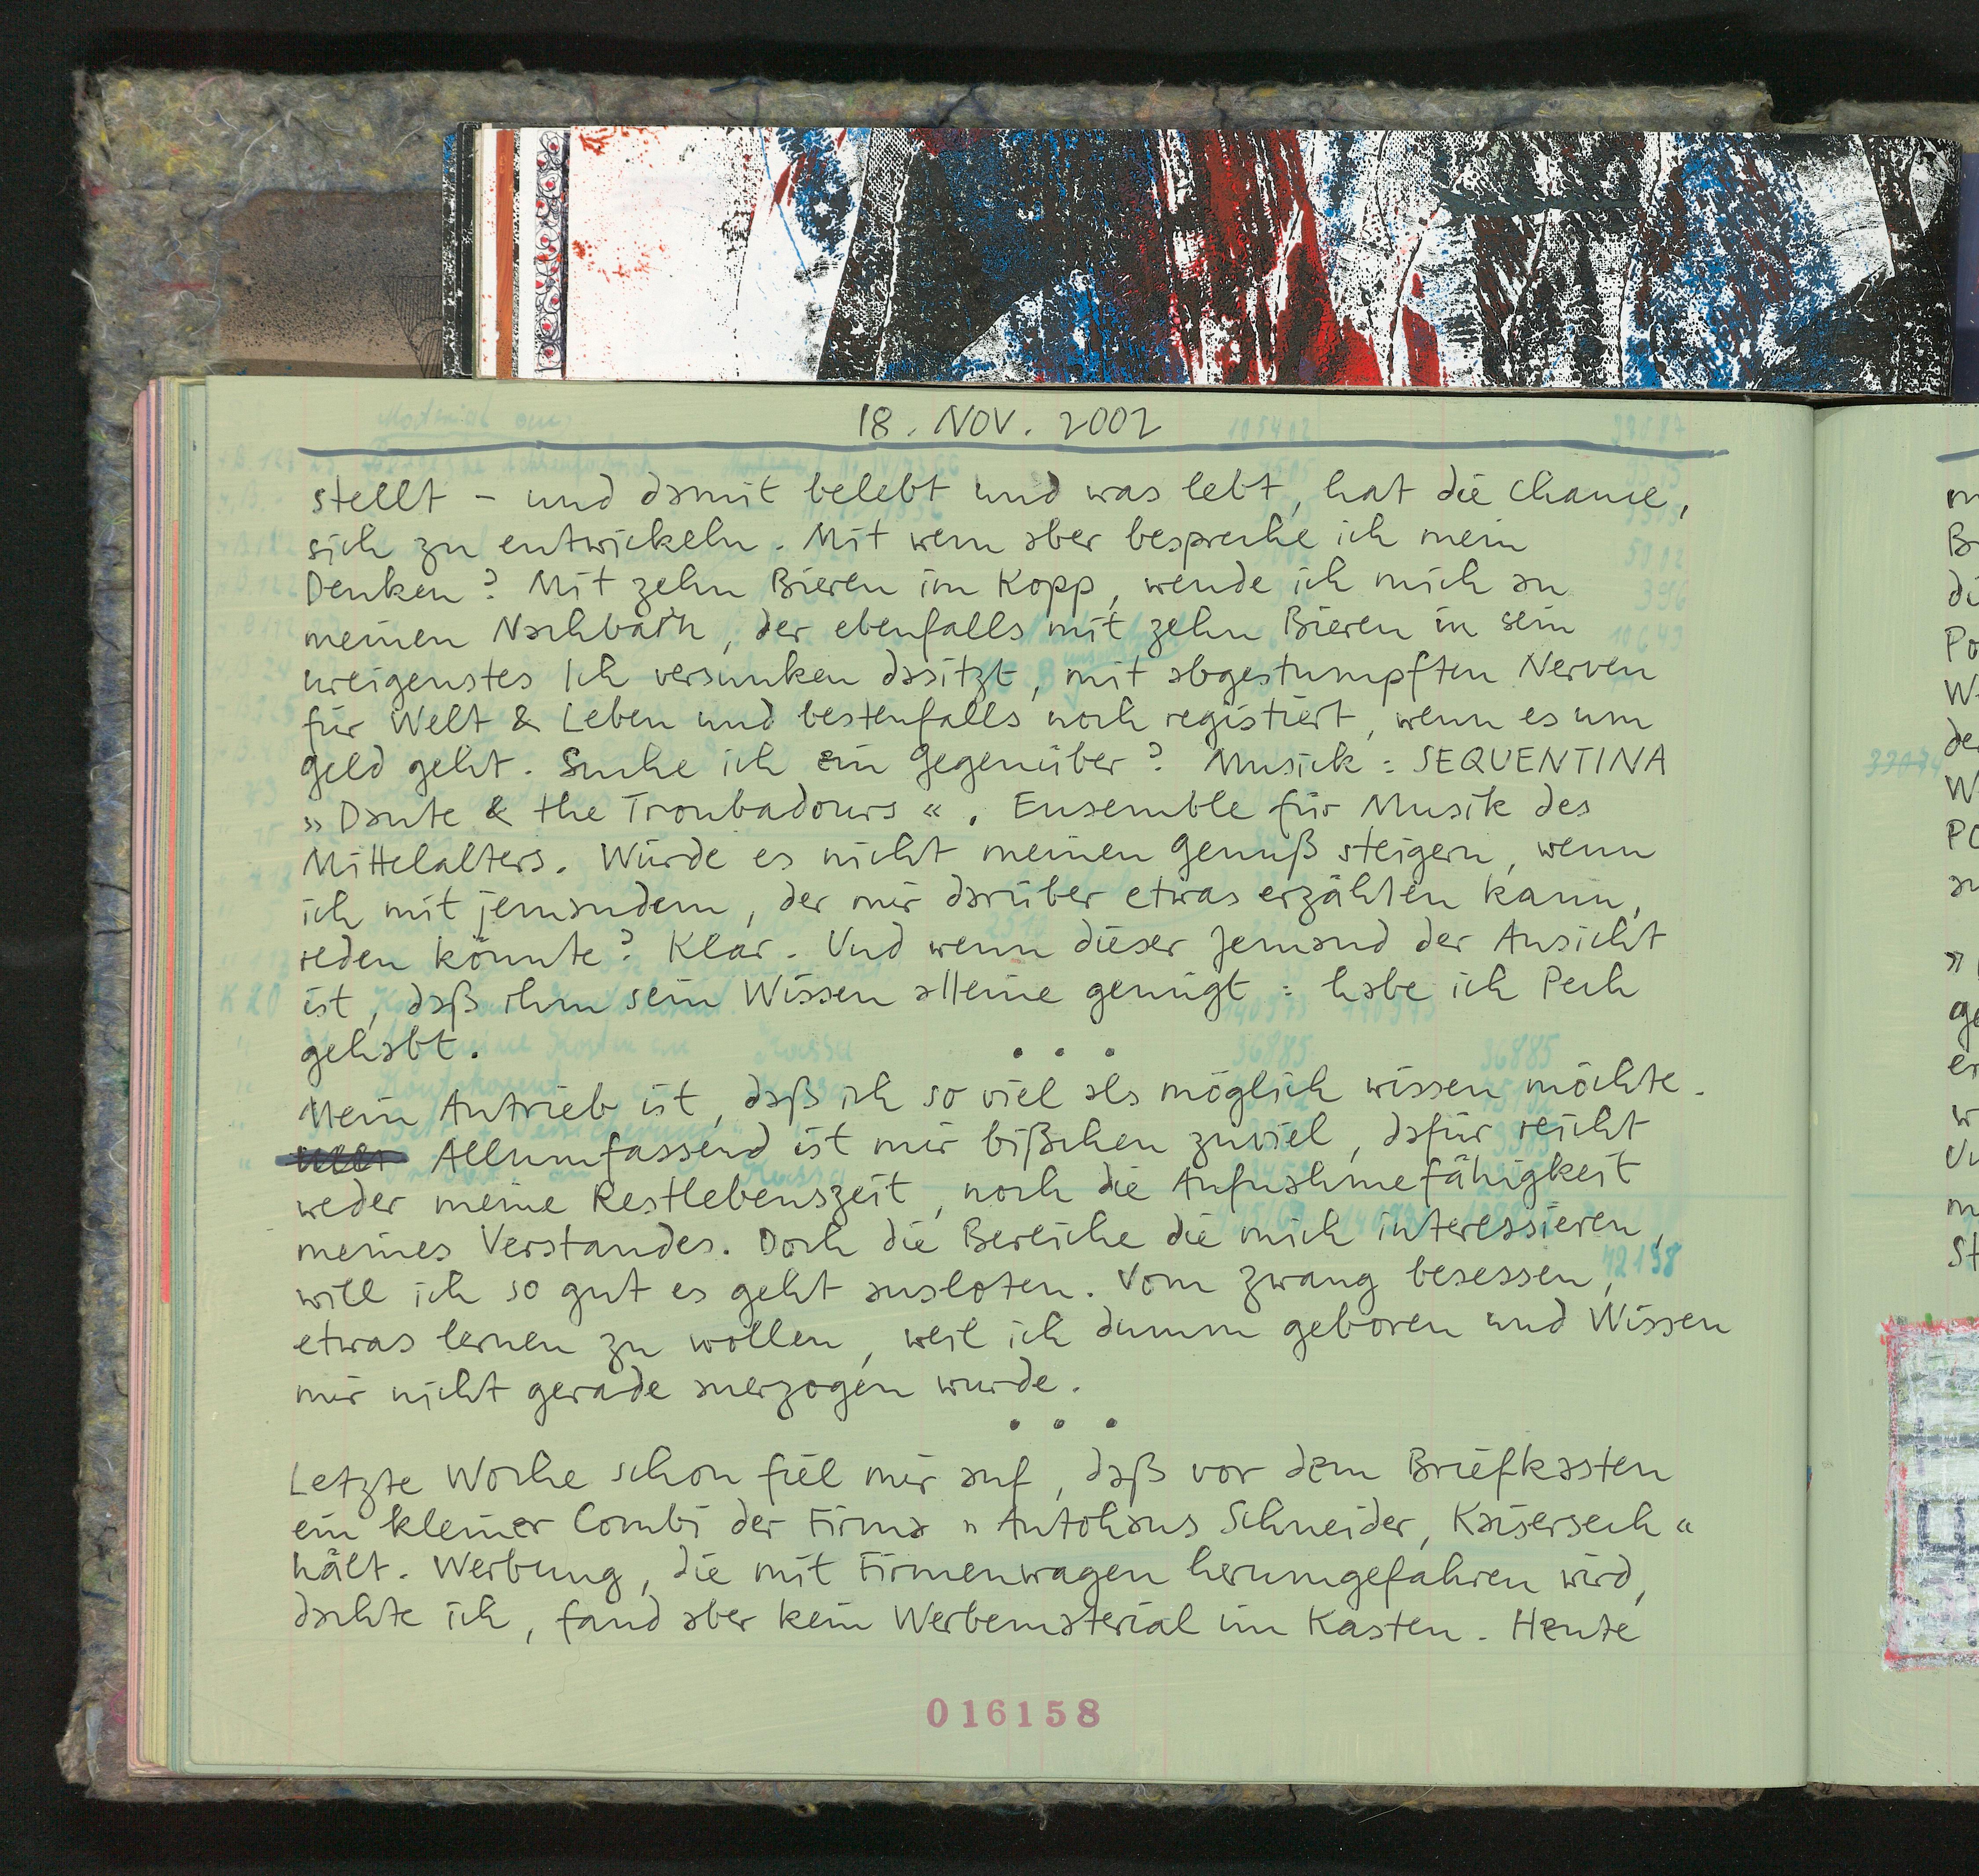 18. NOV. 2002
stellt – und damit belebt und was lebt, hat die Chance,
sich zu entwickeln. Mit wem aber bespreche ich mein
Denken? Mit zehn Bieren im Kopp, wende ich mich an
meinen Nachbarn, der ebenfalls mit zehn Bieren in sein
ureigenstes Ich versunken dasitzt, mit abgestumpften Nerven
für Welt & Leben und bestenfalls noch registiert, wenn es um
Geld geht. Suche ich ein Gegenüber? Musick: SEQUENTINA
»Dante & the Troubadours«. Ensemble für Musik des
Mittelalters. Würde es nicht meinen Genuß steigern, wenn
ich mit jemandem, der mir darüber etwas erzählen kann,
reden könnte? Klar. Und wenn dieser Jemand der Ansicht
ist, daß ihm sein Wissen alleine genügt: habe ich Pech
gehabt.
• • •
Mein Antrieb ist, daß ich so viel als möglich wissen möchte.
Allumfassend ist mir bißchen zuviel, dafür reicht
weder meine Restlebenszeit, noch die Aufnahmefähigkeit
meines Verstandes. Doch die Bereiche die mich interessieren,
will ich so gut es geht ausloten. Vom Zwang besessen,
etwas lernen zu wollen, weil ich dumm geboren und Wissen
mir nicht gerade anerzogen wurde.
• • •
Letzte Woche schon fiel mir auf, daß vor dem Briefkasten
ein kleiner Combi der Firma »Autohaus Schneider, Kaisersech«
hält. Werbung, die mit Firmenwagen herumgefahren wird,
dachte ich, fand aber kein Werbematerial im Kasten. Heute
016158